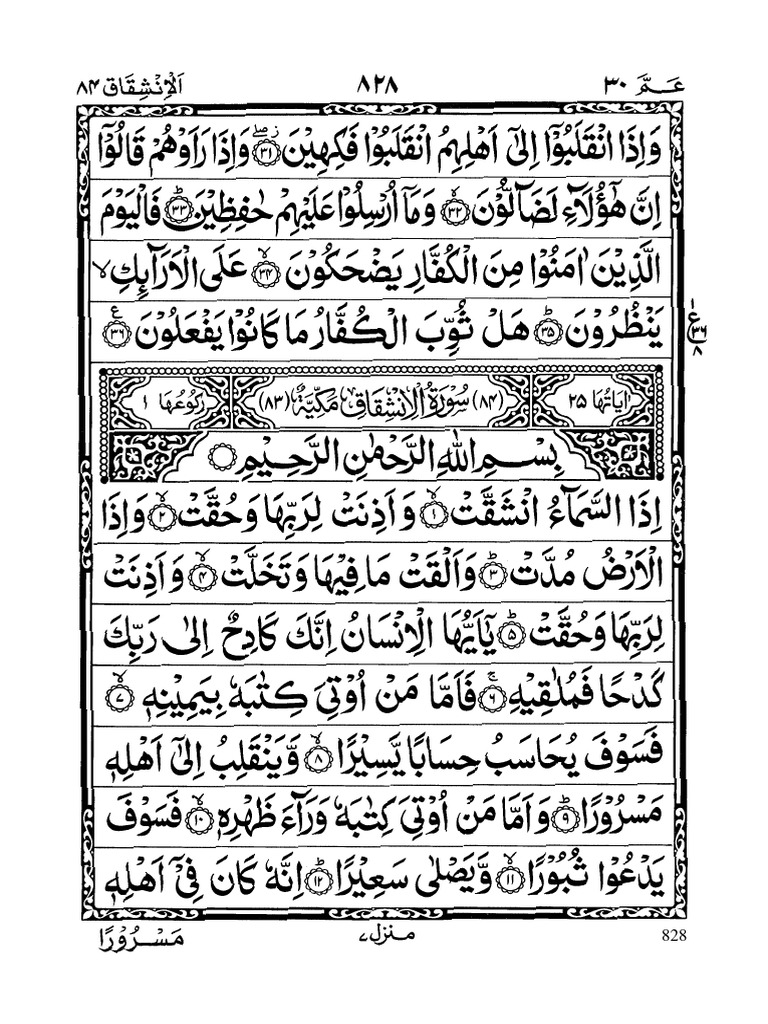 عَـمَّ ٣٠ ٨٢٨ اَلْاِنْشِقَاق ٨۴
وَاِذَا انْقَلَبُوْۤا اِلٰۤى اَهْلِهِمُ انْقَلَبُوْا فَكِهِيْنَ ۖ٘‏﴿۳۱﴾ وَاِذَا رَاَوْهُمْ قَالُوْۤا
اِنَّ هٰٓؤُلَاۤءِ لَضَآلُّوْنَ ۙ‏﴿۳۲﴾ وَمَاۤ اُرْسِلُوْا عَلَيْهِمْ حٰفِظِيْنَ ؕ‏﴿۳۳﴾ فَالْيَوْمَ
الَّذِيْنَ اٰمَنُوْا مِنَ الْكُفَّارِ يَضْحَكُوْنَ ۙ‏﴿۳۴﴾ عَلَى الْاَرَآٮِٕكِ ۙ
يَنْظُرُوْنَ ؕ‏﴿۳۵﴾ هَلْ ثُوِّبَ الْكُفَّارُ مَا كَانُوْا يَفْعَلُوْنَ ﴿۳۶﴾ ع
ع ٣٦ ٨
اٰيَاتُهَا ٢٥ (٨۴) سُوْرَةُ الْاِنْشِقَاقِ مَكِّيَّةٌ (٨٣) رُكُوْعُهَا ١
بِسْمِ اللّٰهِ الرَّحْمٰنِ الرَّحِيْمِ
اِذَا السَّمَآءُ انْشَقَّتْ ۙ‏﴿۱﴾ وَاَذِنَتْ لِرَبِّهَا وَحُقَّتْ ۙ‏﴿۲﴾ وَاِذَا
الْاَرْضُ مُدَّتْ ؕ‏﴿۳﴾ وَاَلْقَتْ مَا فِيْهَا وَتَخَلَّتْ ۙ‏﴿۴﴾ وَاَذِنَتْ
لِرَبِّهَا وَحُقَّتْ ؕ‏﴿۵﴾ يٰۤاَيُّهَا الْاِنْسَانُ اِنَّكَ كَادِحٌ اِلٰى رَبِّكَ
كَدْحًا فَمُلٰقِيْهِ ۚ‏﴿۶﴾ فَاَمَّا مَنْ اُوْتِىَ كِتٰبَهٗ بِيَمِيْنِهٖ ۙ‏﴿۷﴾
فَسَوْفَ يُحَاسَبُ حِسَابًا يَّسِيْرًا ۙ‏﴿۸﴾ وَّيَنْقَلِبُ اِلٰٓى اَهْلِهٖ
مَسْرُوْرًا ؕ‏﴿۹﴾ وَاَمَّا مَنْ اُوْتِىَ كِتٰبَهٗ وَرَآءَ ظَهْرِهٖ ۙ‏﴿۱۰﴾ فَسَوْفَ
يَدْعُوْا ثُبُوْرًا ۙ‏﴿۱۱﴾ وَّيَصْلٰى سَعِيْرًا ؕ‏﴿۱۲﴾ اِنَّهٗ كَانَ فِىْۤ اَهْلِهٖ
828 مـنزل٧ مَسْرُوْرًا